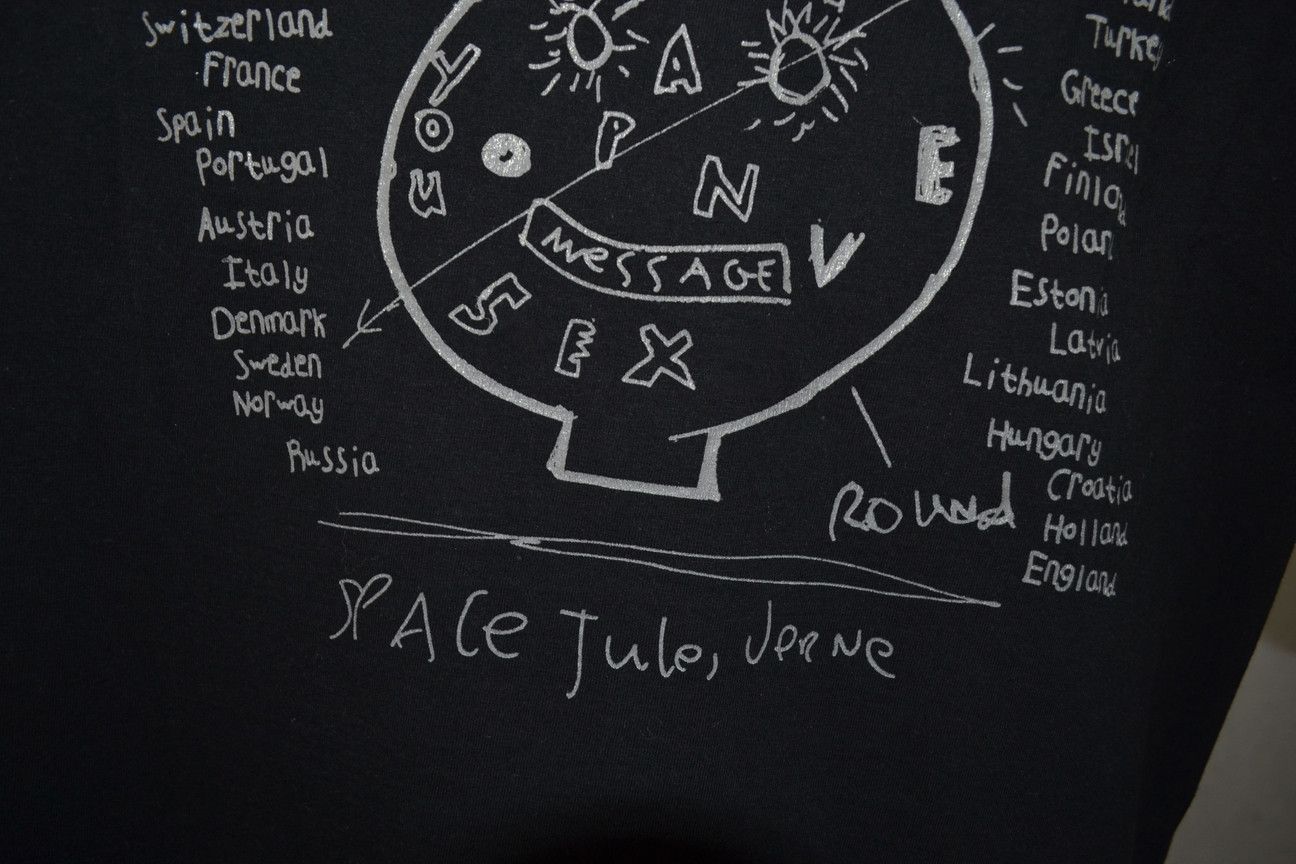 Switzerland
France
Spain
Portugal
Austria
Italy
Denmark
Sweden
Norway
Russia
Y
O
U
A
P
N
E
V
MeSSAGE
S
E
X
Turkey
Greece
Israel
Finland
Poland
Estonia
Latvia
Lithuania
Hungary
Croatia
Holland
England
ROUND
SPACE Jule, Verne